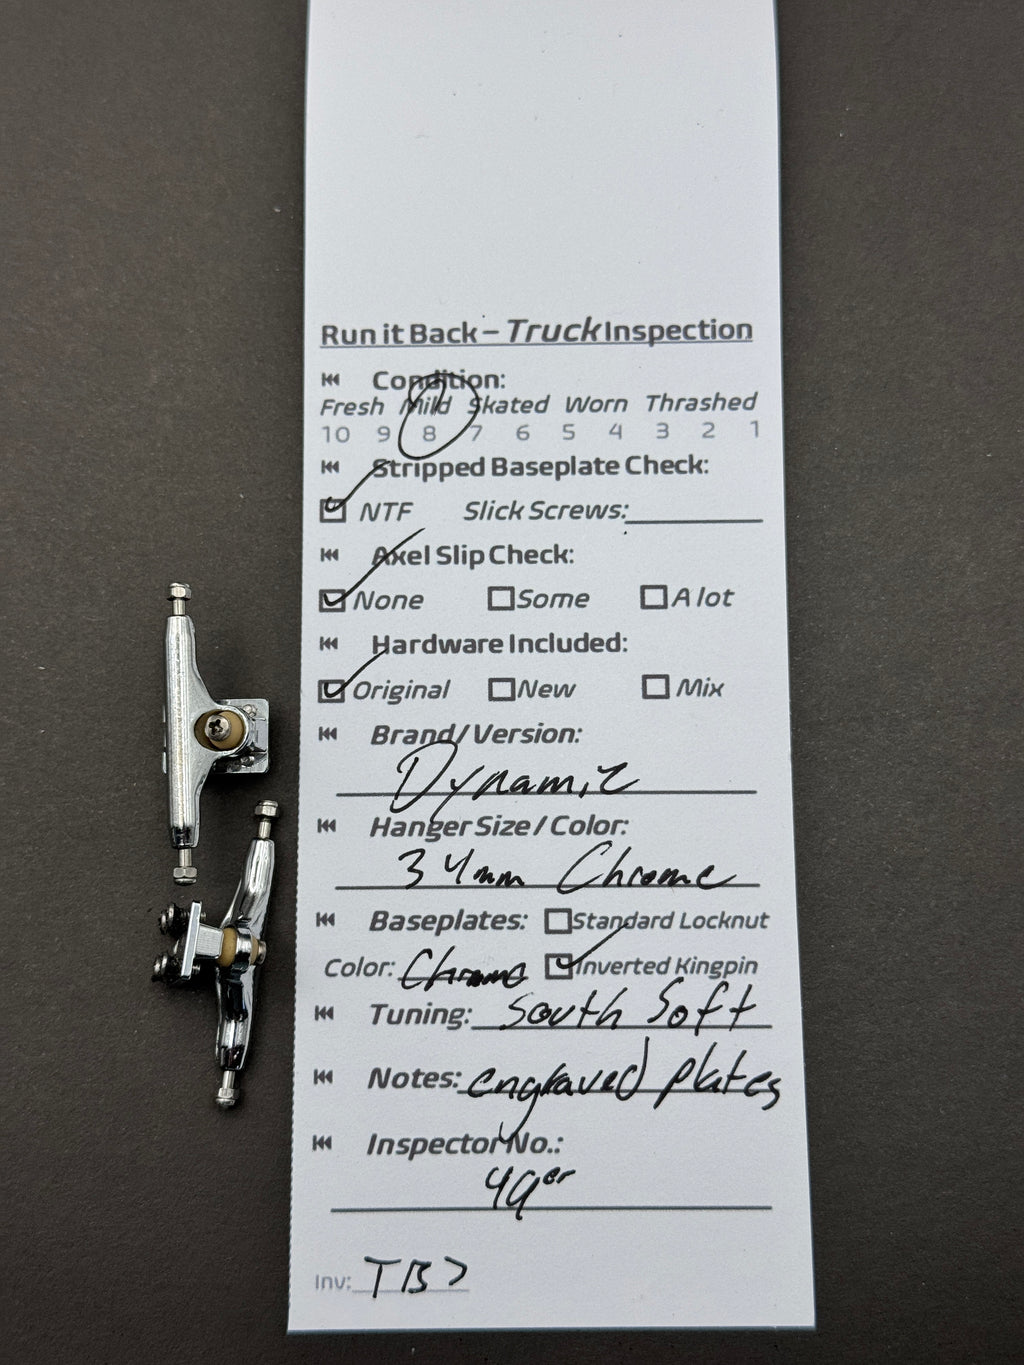 Run it Back – Truck Inspection
Condition:
Fresh Mild Skated Worn Thrashed
10 9 8 7 6 5 4 3 2 1
Stripped Baseplate Check:
NTF Slick Screws:
Axel Slip Check:
None Some A lot
Hardware Included:
Original New Mix
Brand/Version:
Dynamic
Hanger Size/Color:
34mm Chrome
Baseplates: Standard Locknut
Color: Chrome Inverted Kingpin
Tuning: South Soft
Notes: engraved plates
Inspector No.:
49er
Inv: TBD